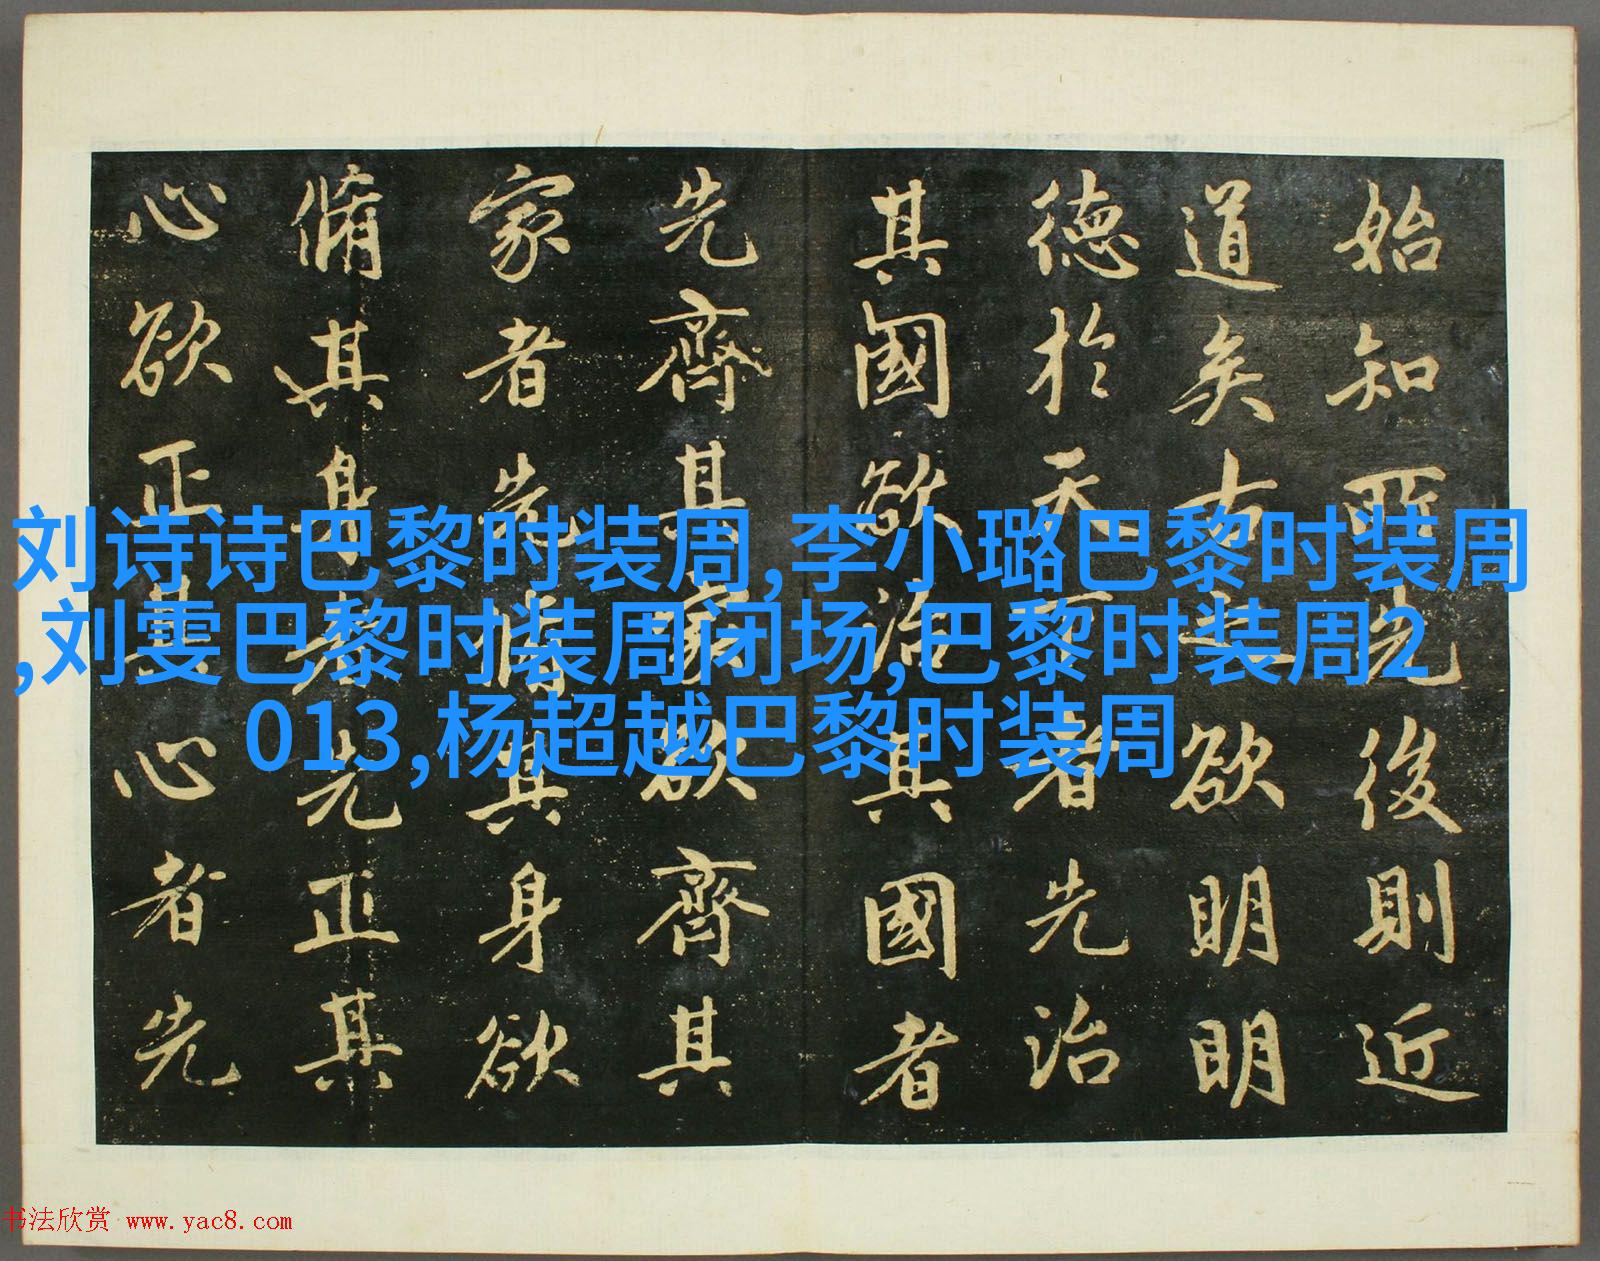 始知所先後則近
道矣古之欲明明
德於天下者先治
其國欲治其國者
先齊其家欲齊其
家者先脩其身欲
脩其身者先正其
心欲正其心者先
刘诗诗巴黎时装周,李小璐巴黎时装周
,刘雯巴黎时装周闭场,巴黎时装周2
013,杨超越巴黎时装周
书法欣赏 www.yac8.com